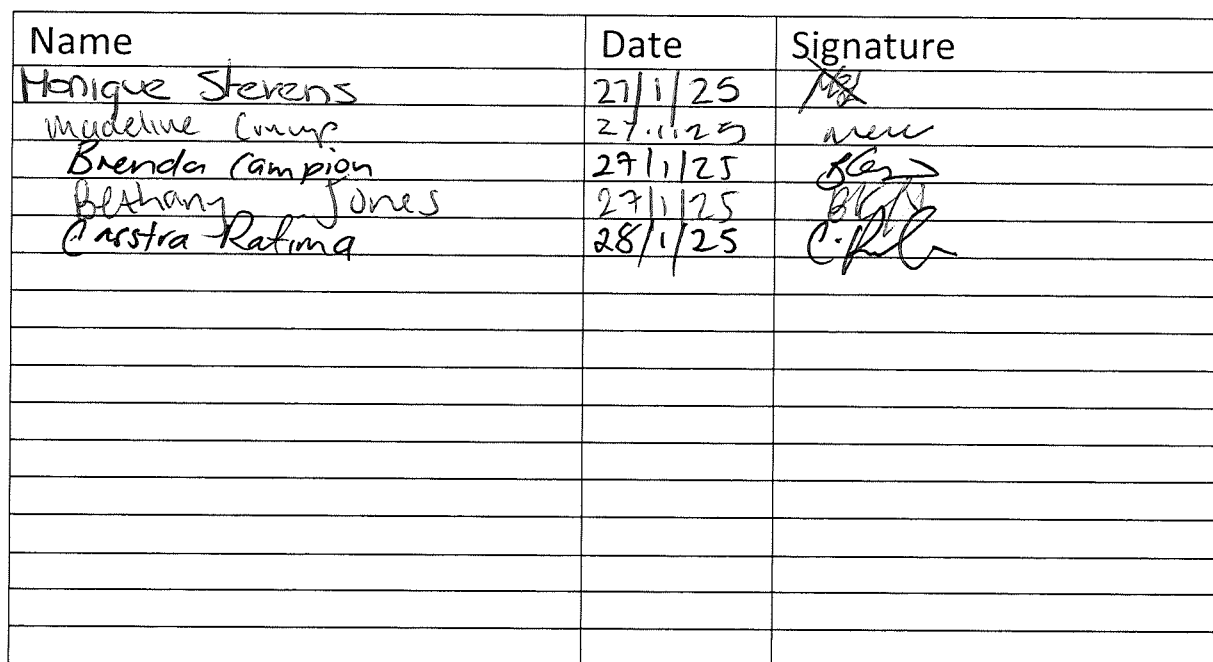 Name Date Signature
Monique Stevens 27/1/25
Madeline 27.1.25
Brenda Campion 27/1/25
Bethany Jones 27/1/25
Ratima 28/1/25